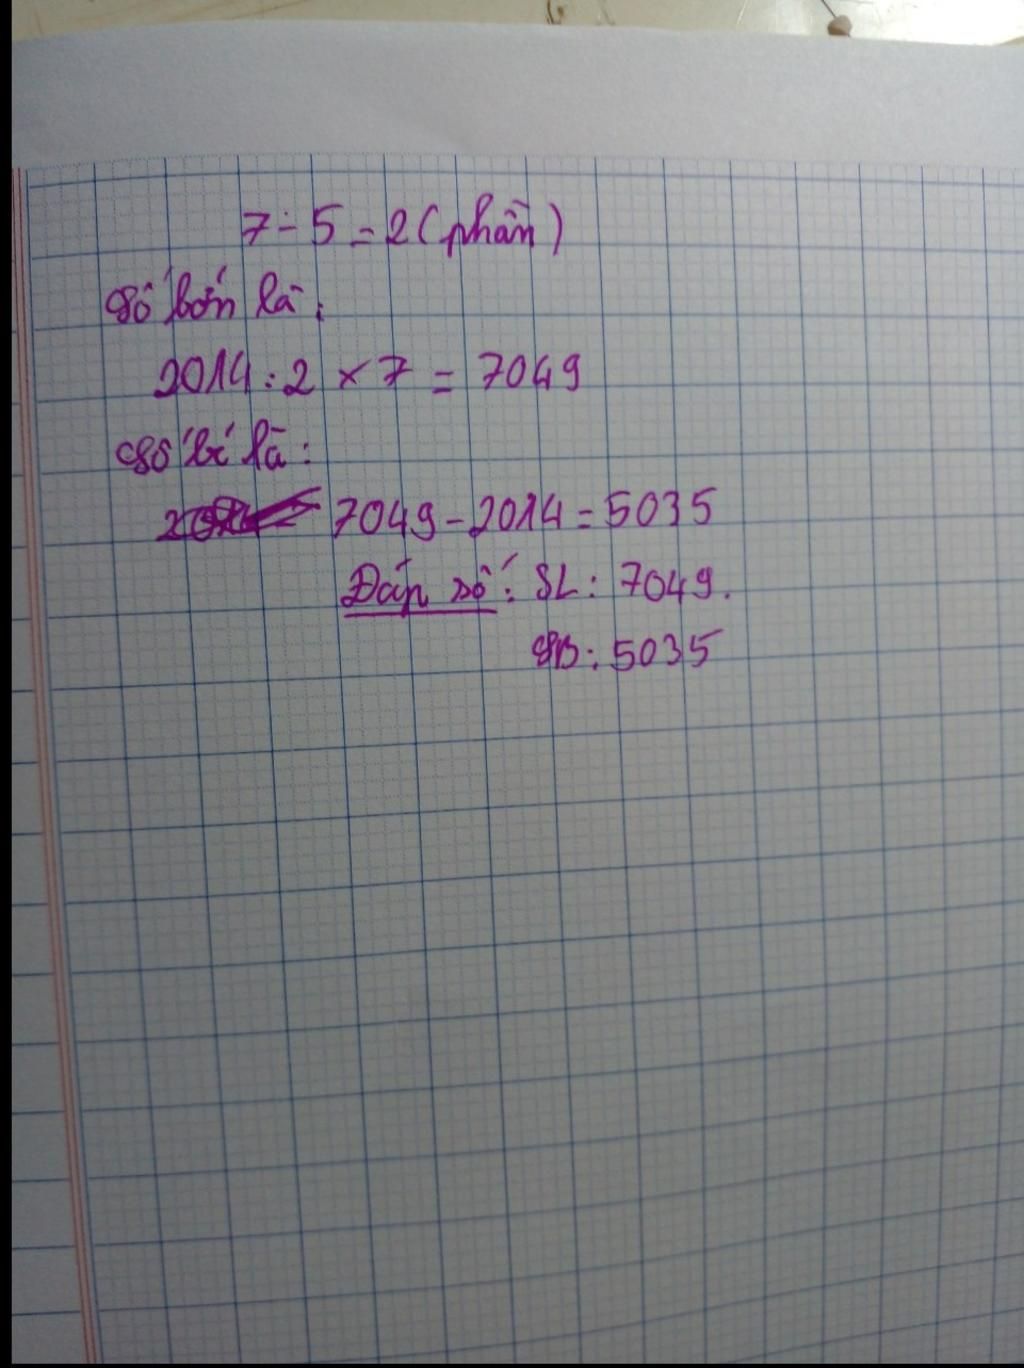 7 - 5 = 2 (phần)
Số lớn là :
2014 : 2 × 7 = 7049
Số bé là :
7049 - 2014 = 5035
Đáp số : SL : 7049.
SB : 5035